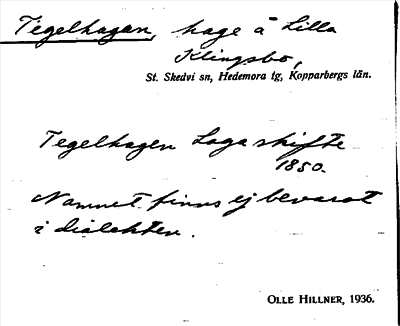 Tegelhagen, hage å Lilla
Klingsbo,
St. Skedvi sn, Hedemora tg, Kopparbergs län.
Tegelhagen Laga skifte
1850.
Namnet finns ej bevarat
i dialekten.
OLLE HILLNER, 1936.